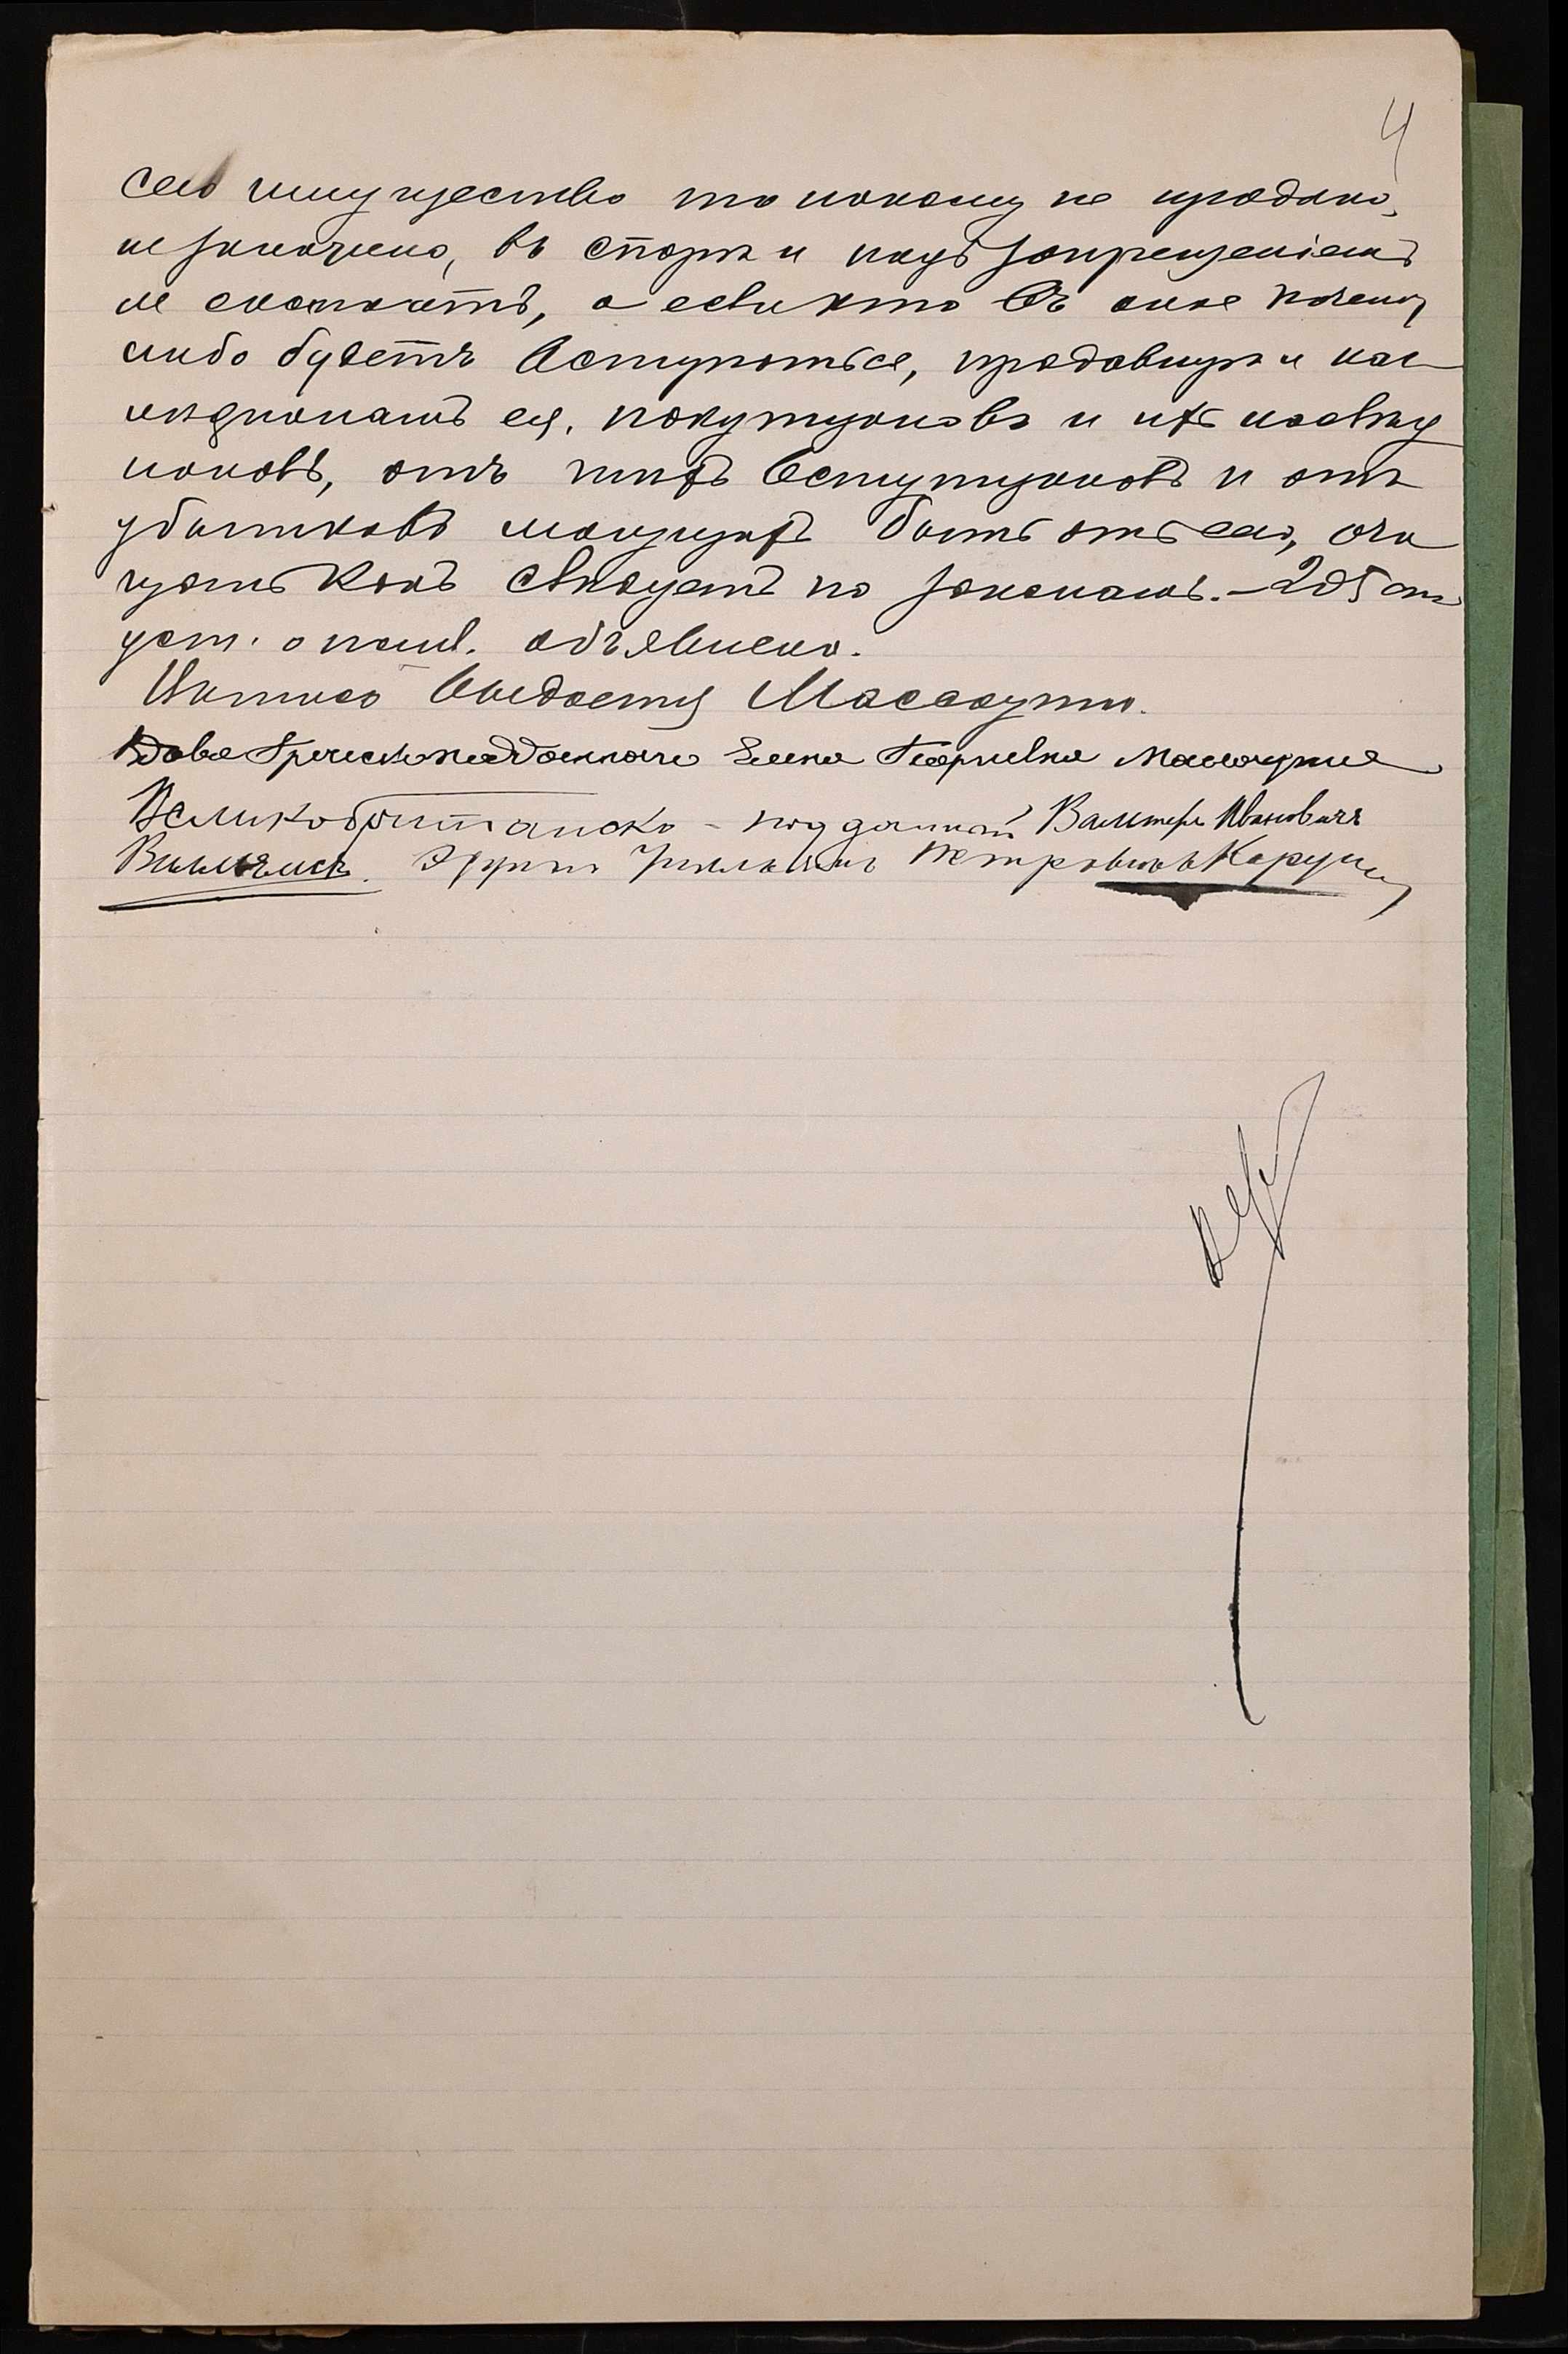 4
сего имущество то никому не продано,
не заложено, въ спорѣ и подъ запрещеніемъ
не состоитъ, а если кто въ оное почему
либо будетъ вступаться, продавцу и нас
лѣдникамъ ея, покупщиковъ и ихъ наслѣд
никовъ, отъ тѣхъ вступщиковъ и отъ
убытковъ могущихъ быть отъ сего, очи
щать какъ слѣдуетъ по законамъ. — 205 ст
уст. о пошл. объявлена.
Массаути.
Вдова Греческоподданнаго Елена Георгіевна Массаутиа
Великобританско-подданный Вальтеръ Ивановичъ
Вильямсъ. Петровичъ